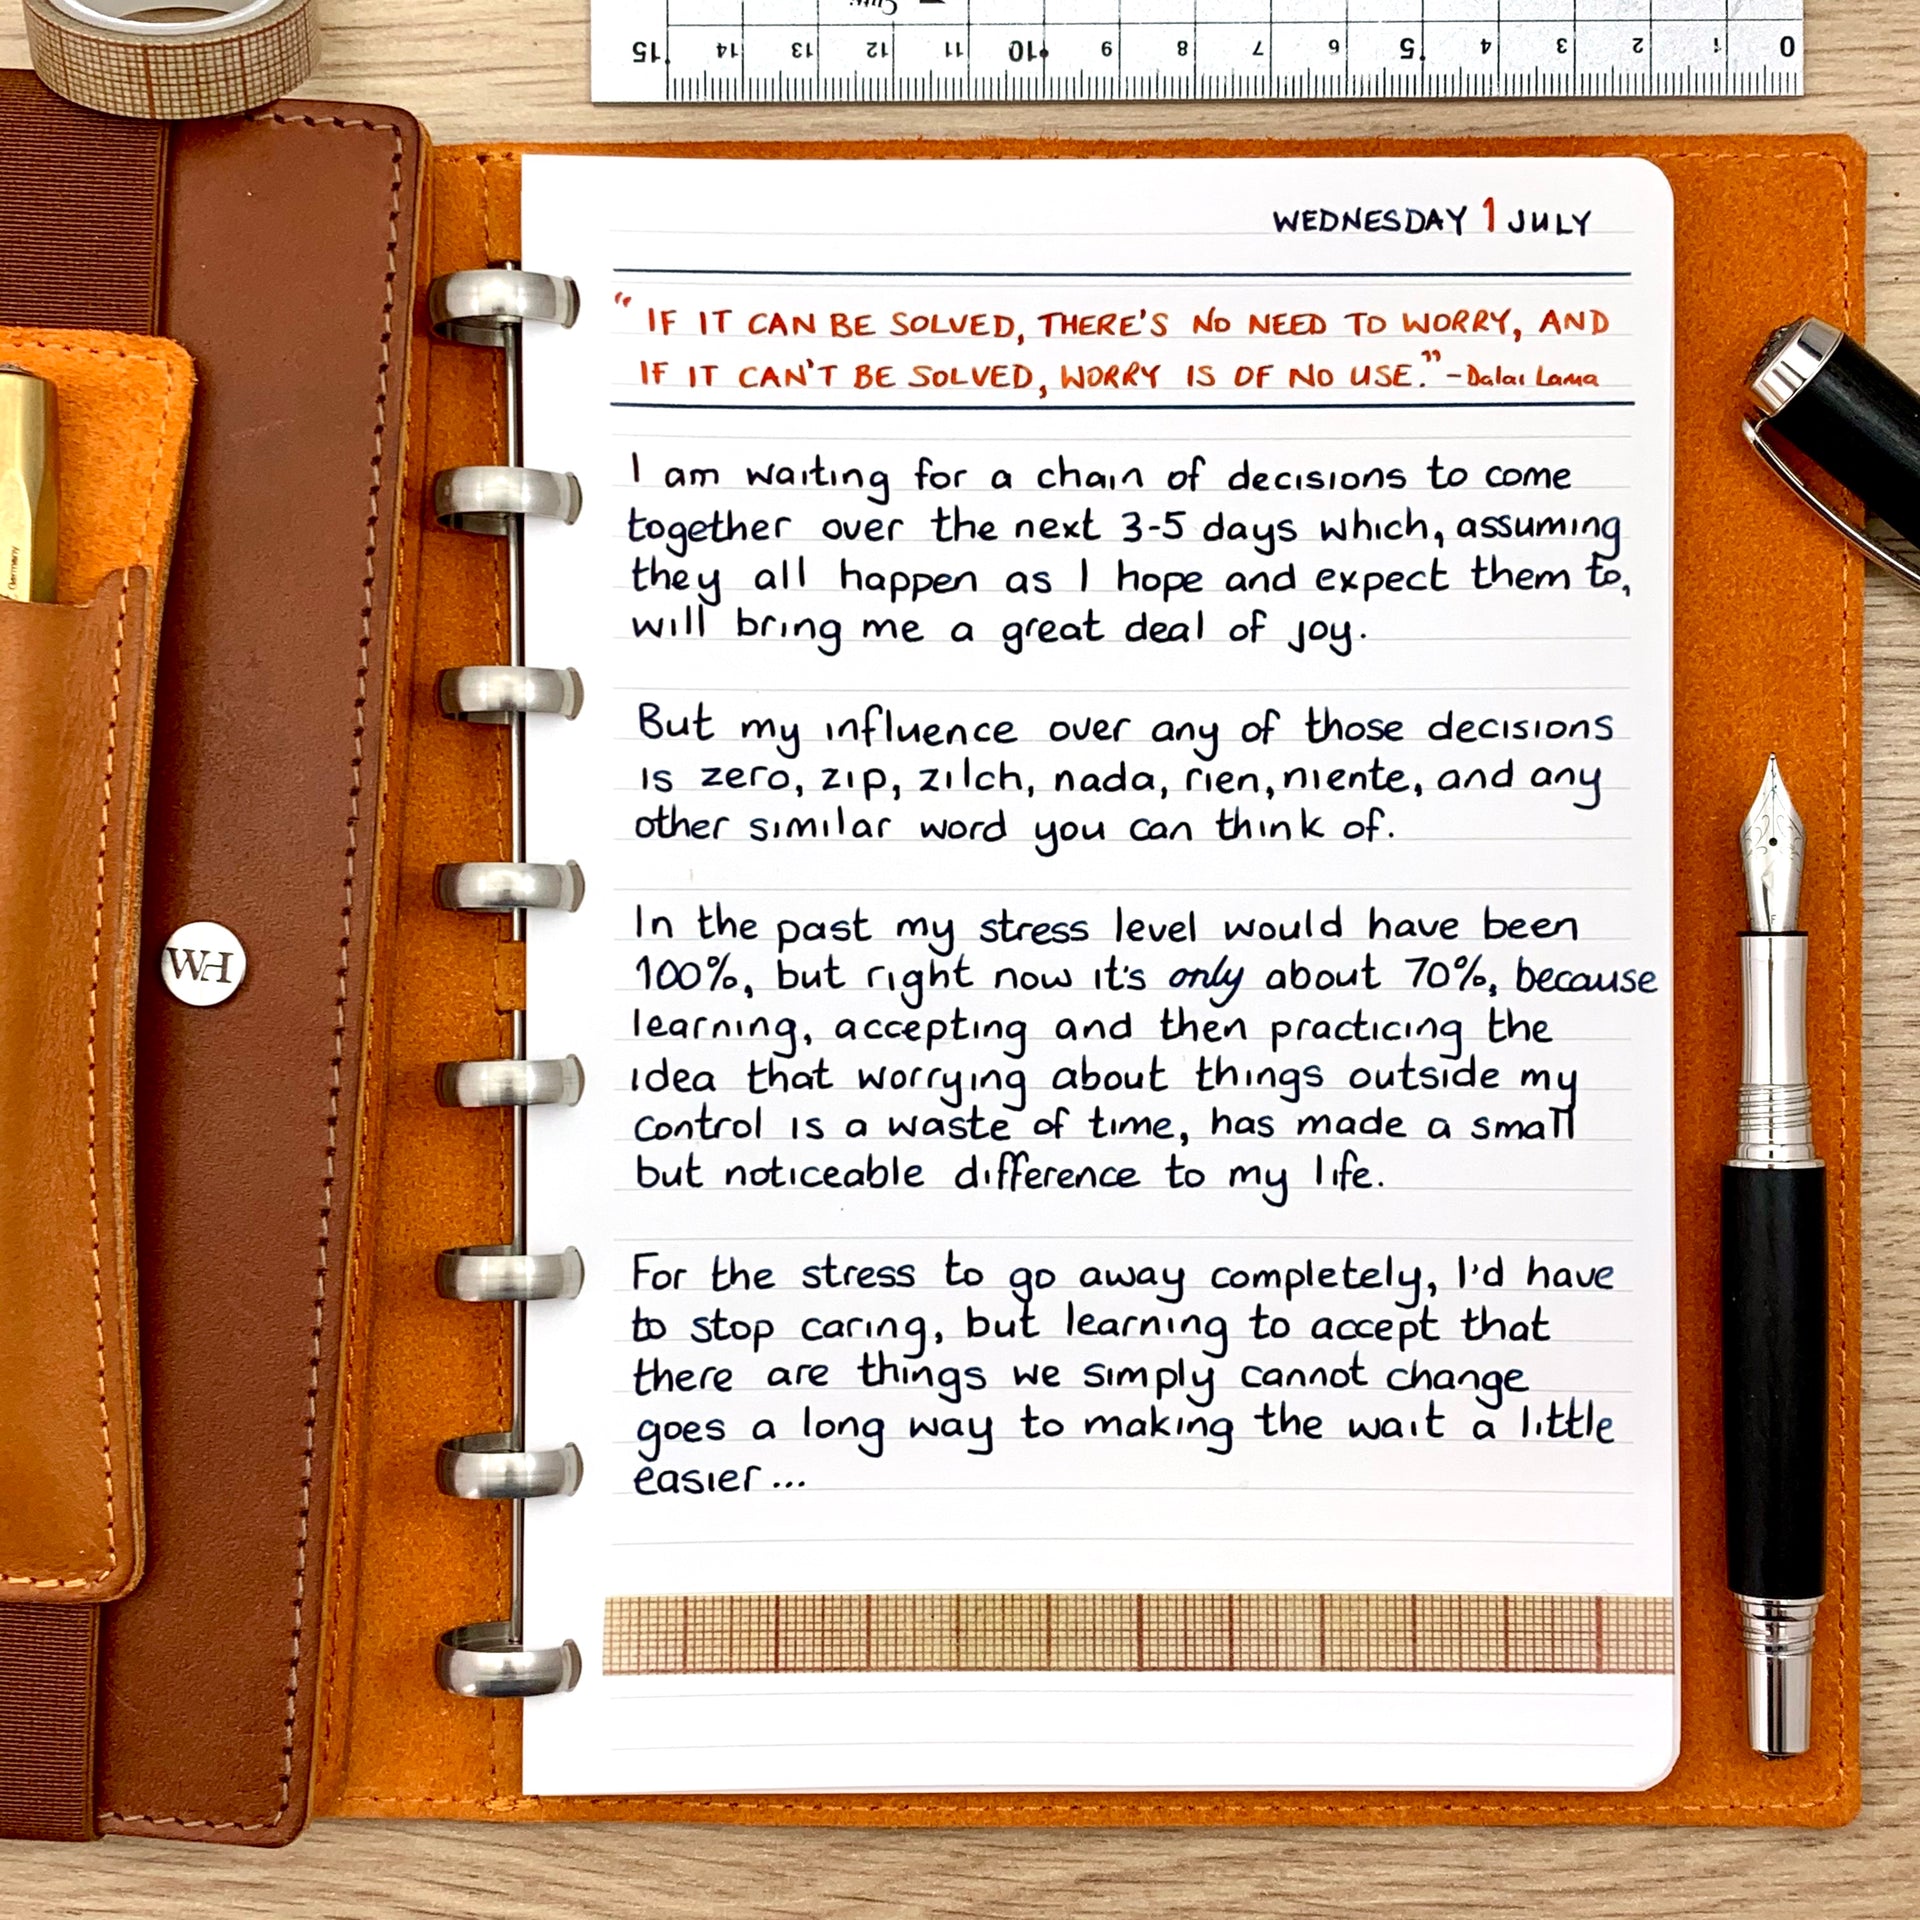 15 14 13 12 11 10 9 8 7 6 5 4 3 2 1 0
WEDNESDAY 1 JULY
“IF IT CAN BE SOLVED, THERE'S NO NEED TO WORRY, AND
IF IT CAN'T BE SOLVED, WORRY IS OF NO USE.” - Dalai Lama
I am waiting for a chain of decisions to come
together over the next 3-5 days which, assuming
they all happen as I hope and expect them to,
will bring me a great deal of joy.
But my influence over any of those decisions
is zero, zip, zilch, nada, rien, niente, and any
other similar word you can think of.
In the past my stress level would have been
100%, but right now it's only about 70%, because
learning, accepting and then practicing the
idea that worrying about things outside my
control is a waste of time, has made a small
but noticeable difference to my life.
For the stress to go away completely, I'd have
to stop caring, but learning to accept that
there are things we simply cannot change
goes a long way to making the wait a little
easier...
WH
Germany
F